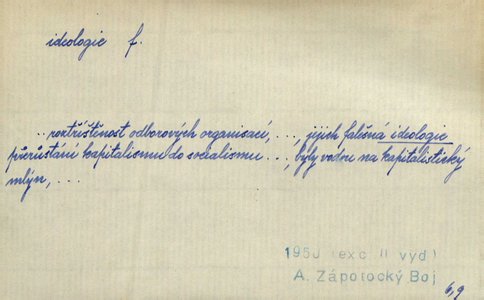 ideologie f.
..roztříštěnost odborových organisací,..., jejich falešná ideologie
přerůstání kapitalismu do socialismu..., byly vodou na kapitalistický
mlýn,...
1950 (exc II vyd)
A. Zápotocký Boj
6,9